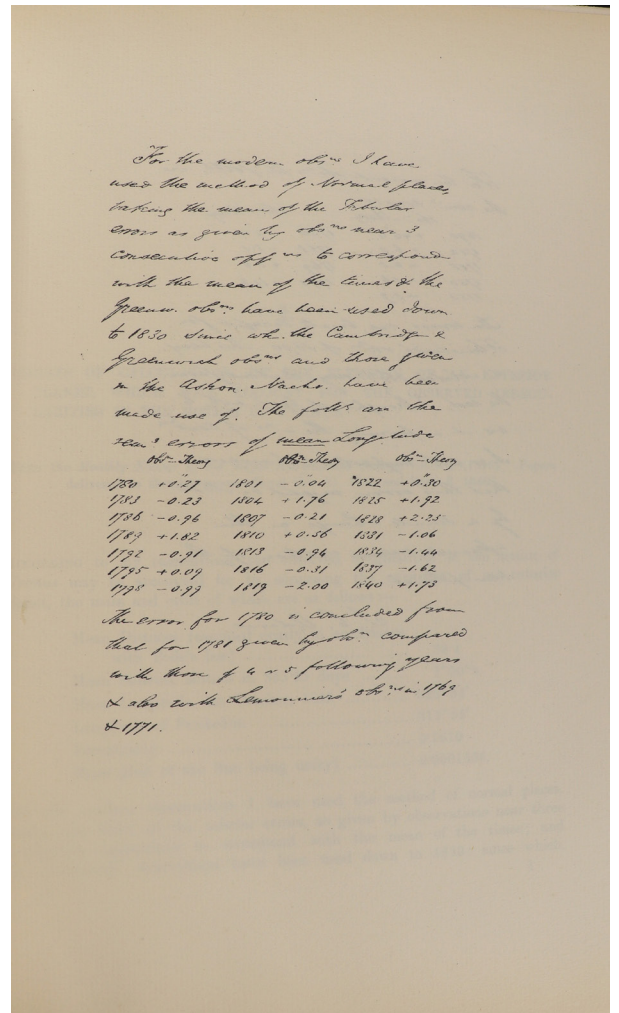 For the modern obsns I have
used the method of Normal places,
taking the mean of the Tabular
errors as given by obsns near 3
consecutive oppns to correspond
with the mean of the times & the
Greenw. obsns have been used down
to 1830 since wh. the Cambridge &
Greenwich obsns and those given
in the Astron. Nachr. have been
made use of. The follg are the
remg errors of mean Longitude
Obsn–Theory Obsn–Theory Obsn–Theory
1780 +0.27 1801 –0.04 1822 +0.30
1783 –0.23 1804 +1.76 1825 +1.92
1786 –0.96 1807 –0.21 1828 +2.25
1789 +1.82 1810 +0.56 1831 –1.06
1792 –0.91 1813 –0.94 1834 –1.44
1795 +0.09 1816 –0.31 1837 –1.62
1798 –0.99 1819 –2.00 1840 +1.73
The error for 1780 is concluded from
that for 1781 given by obsn. compared
with those of 4 or 5 following years
& also with Lemonnier's obsns in 1769
& 1771.